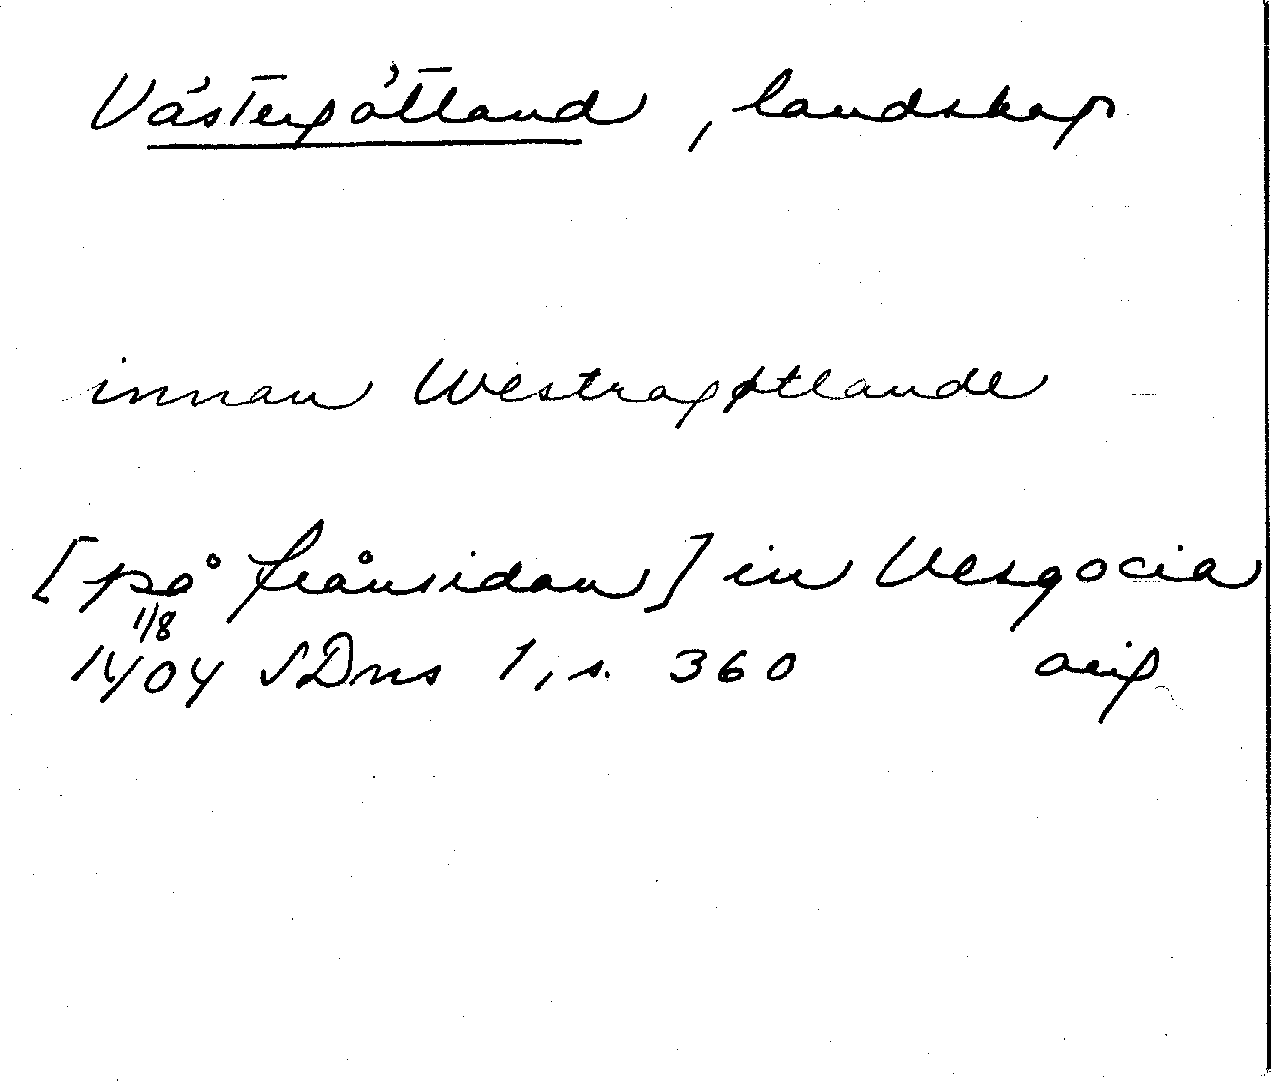 Västergötland, landskap
innan Westragøtlande
[på frånsidan] in Vesgocia
1/8
1404 SDns 1, s. 360 orig